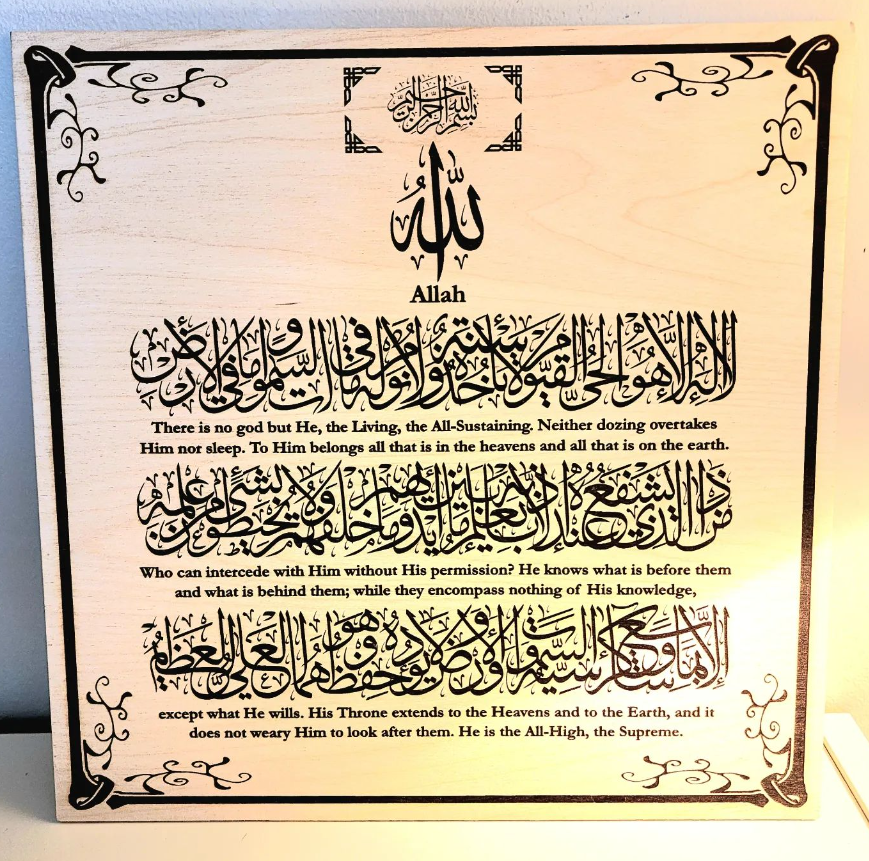 بسم الله الرحمن الرحيم
الله
Allah
لا إله إلا هو الحي القيوم لا تأخذه سنة ولا نوم له ما في السموات وما في الأرض
There is no god but He, the Living, the All-Sustaining. Neither dozing overtakes
Him nor sleep. To Him belongs all that is in the heavens and all that is on the earth.
من ذا الذي يشفع عنده إلا بإذنه يعلم ما بين أيديهم وما خلفهم ولا يحيطون بشيء من علمه
Who can intercede with Him without His permission? He knows what is before them
and what is behind them; while they encompass nothing of His knowledge,
إلا بما شاء وسع كرسيه السموات والأرض ولا يؤده حفظهما وهو العلي العظيم
except what He wills. His Throne extends to the Heavens and to the Earth, and it
does not weary Him to look after them. He is the All-High, the Supreme.